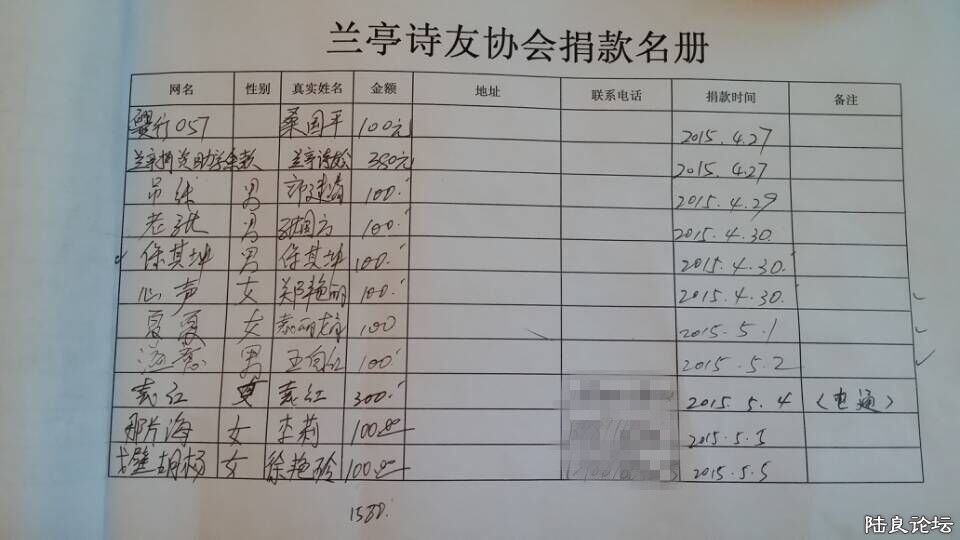 兰亭诗友协会捐款名册
网名 性别 真实姓名 金额 地址 联系电话 捐款时间 备注
行057 桑国平 100元 2015.4.27
兰亭捐资助学余款 兰亭诗 380元 2015.4.27
男 100. 2015.4.29
老张 男 张国 100. 2015.4.30.
保其坤 男 保其坤 100. 2015.4.30.
心声 女 郑艳丽 100. 2015.4.30.
夏夏 女 100 2015.5.1
男 100. 2015.5.2
袁红 袁红 300. 2015.5.4 (电通)
那片海 女 李莉 100.00 2015.5.
戈壁胡杨 女 徐艳玲 100.00 2015.5.5
1580.
陆良论坛